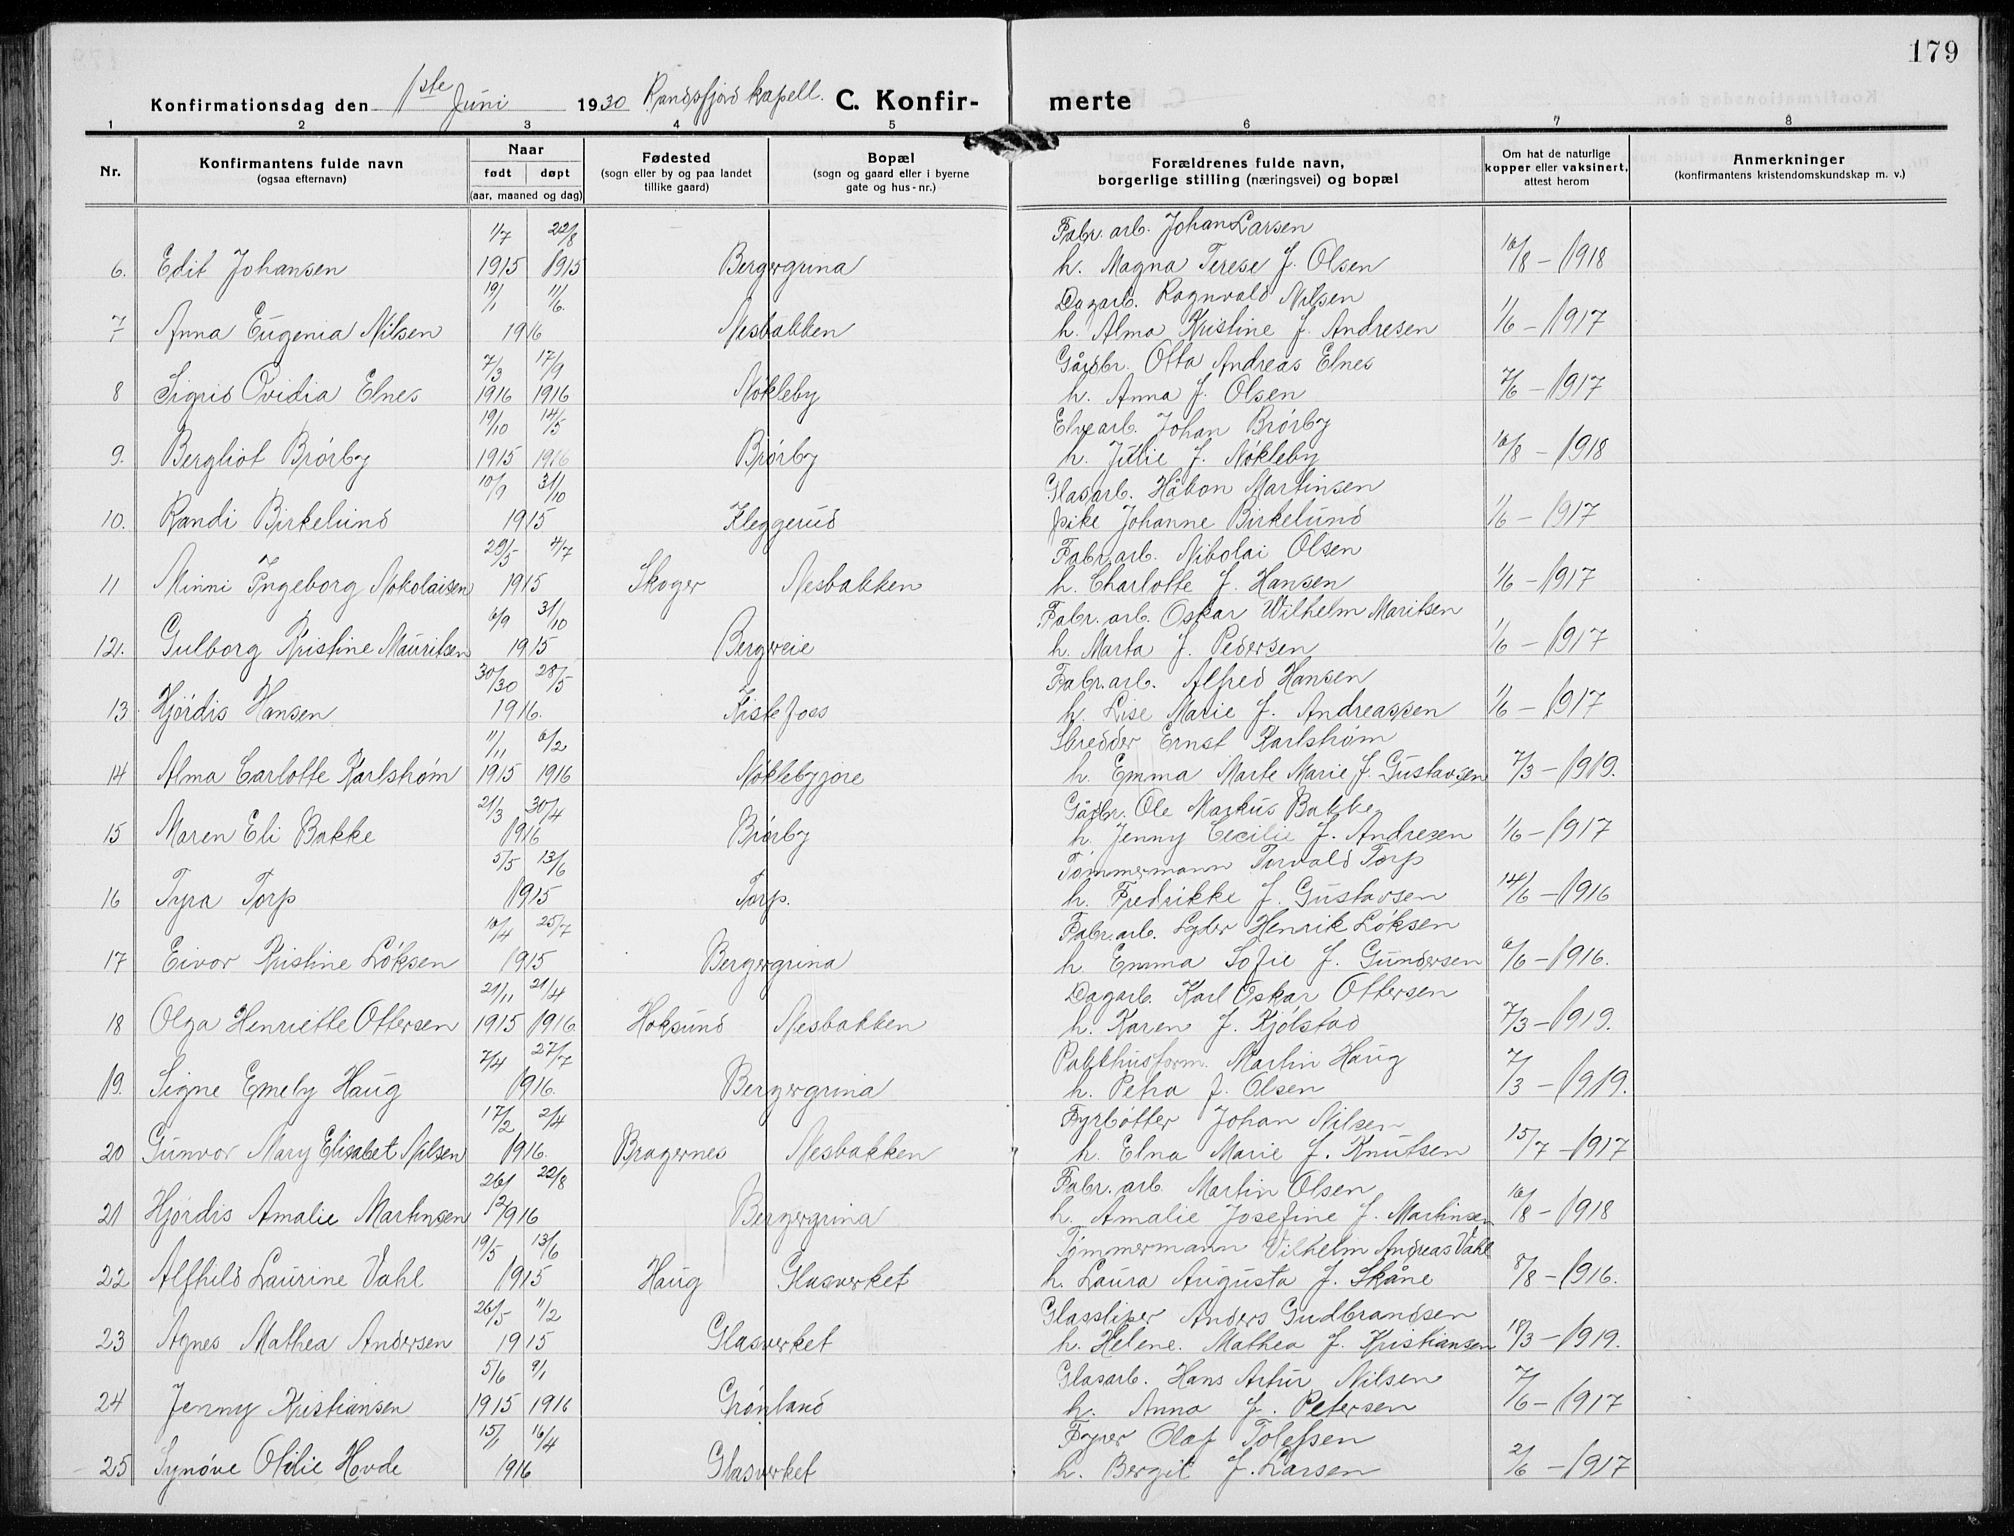 179
Konfirmationsdag den 1ste Juni 1930 Randsfjord kapell. C. Konfirmerte
1 2 3 4 5 6 7 8
Nr. Konfirmantens fulde navn (ogsaa efternavn) Naar født døpt (aar, maaned og dag) Fødested (sogn eller by og paa landet tillike gaard) Bopæl (sogn og gaard eller i byerne gate og hus-nr.) Forældrenes fulde navn, borgerlige stilling (næringsvei) og bopæl Om hat de naturlige kopper eller vaksinert, attest herom Anmerkninger (konfirmantens kristendomskundskap m. v.)
1/7 22/8 Fabr. arb. Johan Larsen
6. Edit Johansen 1915 1915 Bergergrina h. Magna Terese f. Olsen 16/8 - 1918
19/1 11/6 Dagarb. Ragnvald Nilsen
7 Anna Eugenia Nilsen 1916 Nesbakken h. Alma Kristine f. Andresen 1/6 - 1917
7/3 17/9 Gårdbr. Otto Andreas Elnes
8 Sigrid Ovidia Elnes 1916 1916 Nøkleby h. Anna f. Olsen 7/6 - 1917
19/10 14/5 Elvearb. Johan Brørby
9. Bergliot Brørby 1915 1916 Brørby h. Julie f. Nøkleby 16/8 - 1918
10/9 31/10 Glasarb. Håkon Martinsen
10. Randi Birkelund 1915 Kleggerud pike Johanne Birkelund 1/6 - 1917
29/5 4/7 Fabr. arb. Nikolai Olsen
11 Minni Ingeborg Nokolaisen 1915 Skoger Nesbakken h. Charlotte f. Hansen 1/6 - 1917
6/9 31/10 Fabr. arb. Oskar Wilhelm Maritsen
12. Gulborg Kristine Mauritsen 1915 Bergereie h. Marta f. Pedersen 1/6 - 1917
30/30 28/5 Fabr. arb. Alfred Hansen
13 Hjørdis Hansen 1916. Kistefoss h. Lise Marie f. Andreassen 1/6 - 1917
11/11 6/2 Skredder Ernst Karlstrøm
14 Alma Carlotte Karlstrøm 1915 1916 Nøklebyjore h. Emma Marte Marie f. Gustavsen 7/3 - 1919.
21/3 30/4 Gårdbr. Ole Markus Bakke
15 Maren Eli Bakke 1916 Brørby h. Jenny Cecilie f. Andresen 1/6 - 1917
5/5 13/6 Tømmermann Torvald Torp
16 Tyra Torp 1915 Torp. h. Fredrikke f. Gustavsen 14/6 - 1916
16/4 25/7 Fabr. arb. Lyder Henrik Løksen
17 Eivor Kristine Løksen 1915 Bergergrina h. Emma Sofie f. Gundersen 6/6 - 1916.
21/11 21/4 Dagarb. Karl Oskar Ottersen
18 Olga Henriette Ottersen 1915 1916 Hoksund Nesbakken h. Karen f. Kjølstad 7/3 - 1919.
7/4 27/7 Pakkhusform. Martin Haug
19. Signe Emely Haug 1916. Bergergrina h. Petra f. Olsen 7/3 - 1919.
17/2 2/4 Fyrbøtter Johan Nilsen
20 Gunvor Mary Elisabet Nilsen 1916. Bragernes Nesbakken h. Elna Marie f. Knutsen 15/7 - 1917
26/ 22/8 Fabr. arb. Martin Olsen
21 Hjørdis Amalie Martinsen 12 1916 Bergergrina h. Amalie Josefine f. Martinsen 16/8 - 1918
19/5 13/6 Tømmermann Vilhelm Andreas Vahl
22 Alfhild Laurine Vahl 1915 Haug Glasverket h. Laura Augusta f. Skåne 8/8 - 1916.
26/5 11/2 Glassliper Anders Gudbrandsen
23 Agnes Mathea Andersen 1915 Glasverket h. Helene Mathea f. Kristiansen 18/3 - 1919.
5/6 9/1 Glasarb. Hans Artur Nilsen
24 Jenny Kristiansen 1915 1916 Grønland h. Anna f. Petersen 7/6 - 1917
15/1 16/4 Fyrer Olaf Tolefsen
25 Synøve Otilie Hovde 1916 Glasverket h. Bergit f. Larsen 2/6 - 1917